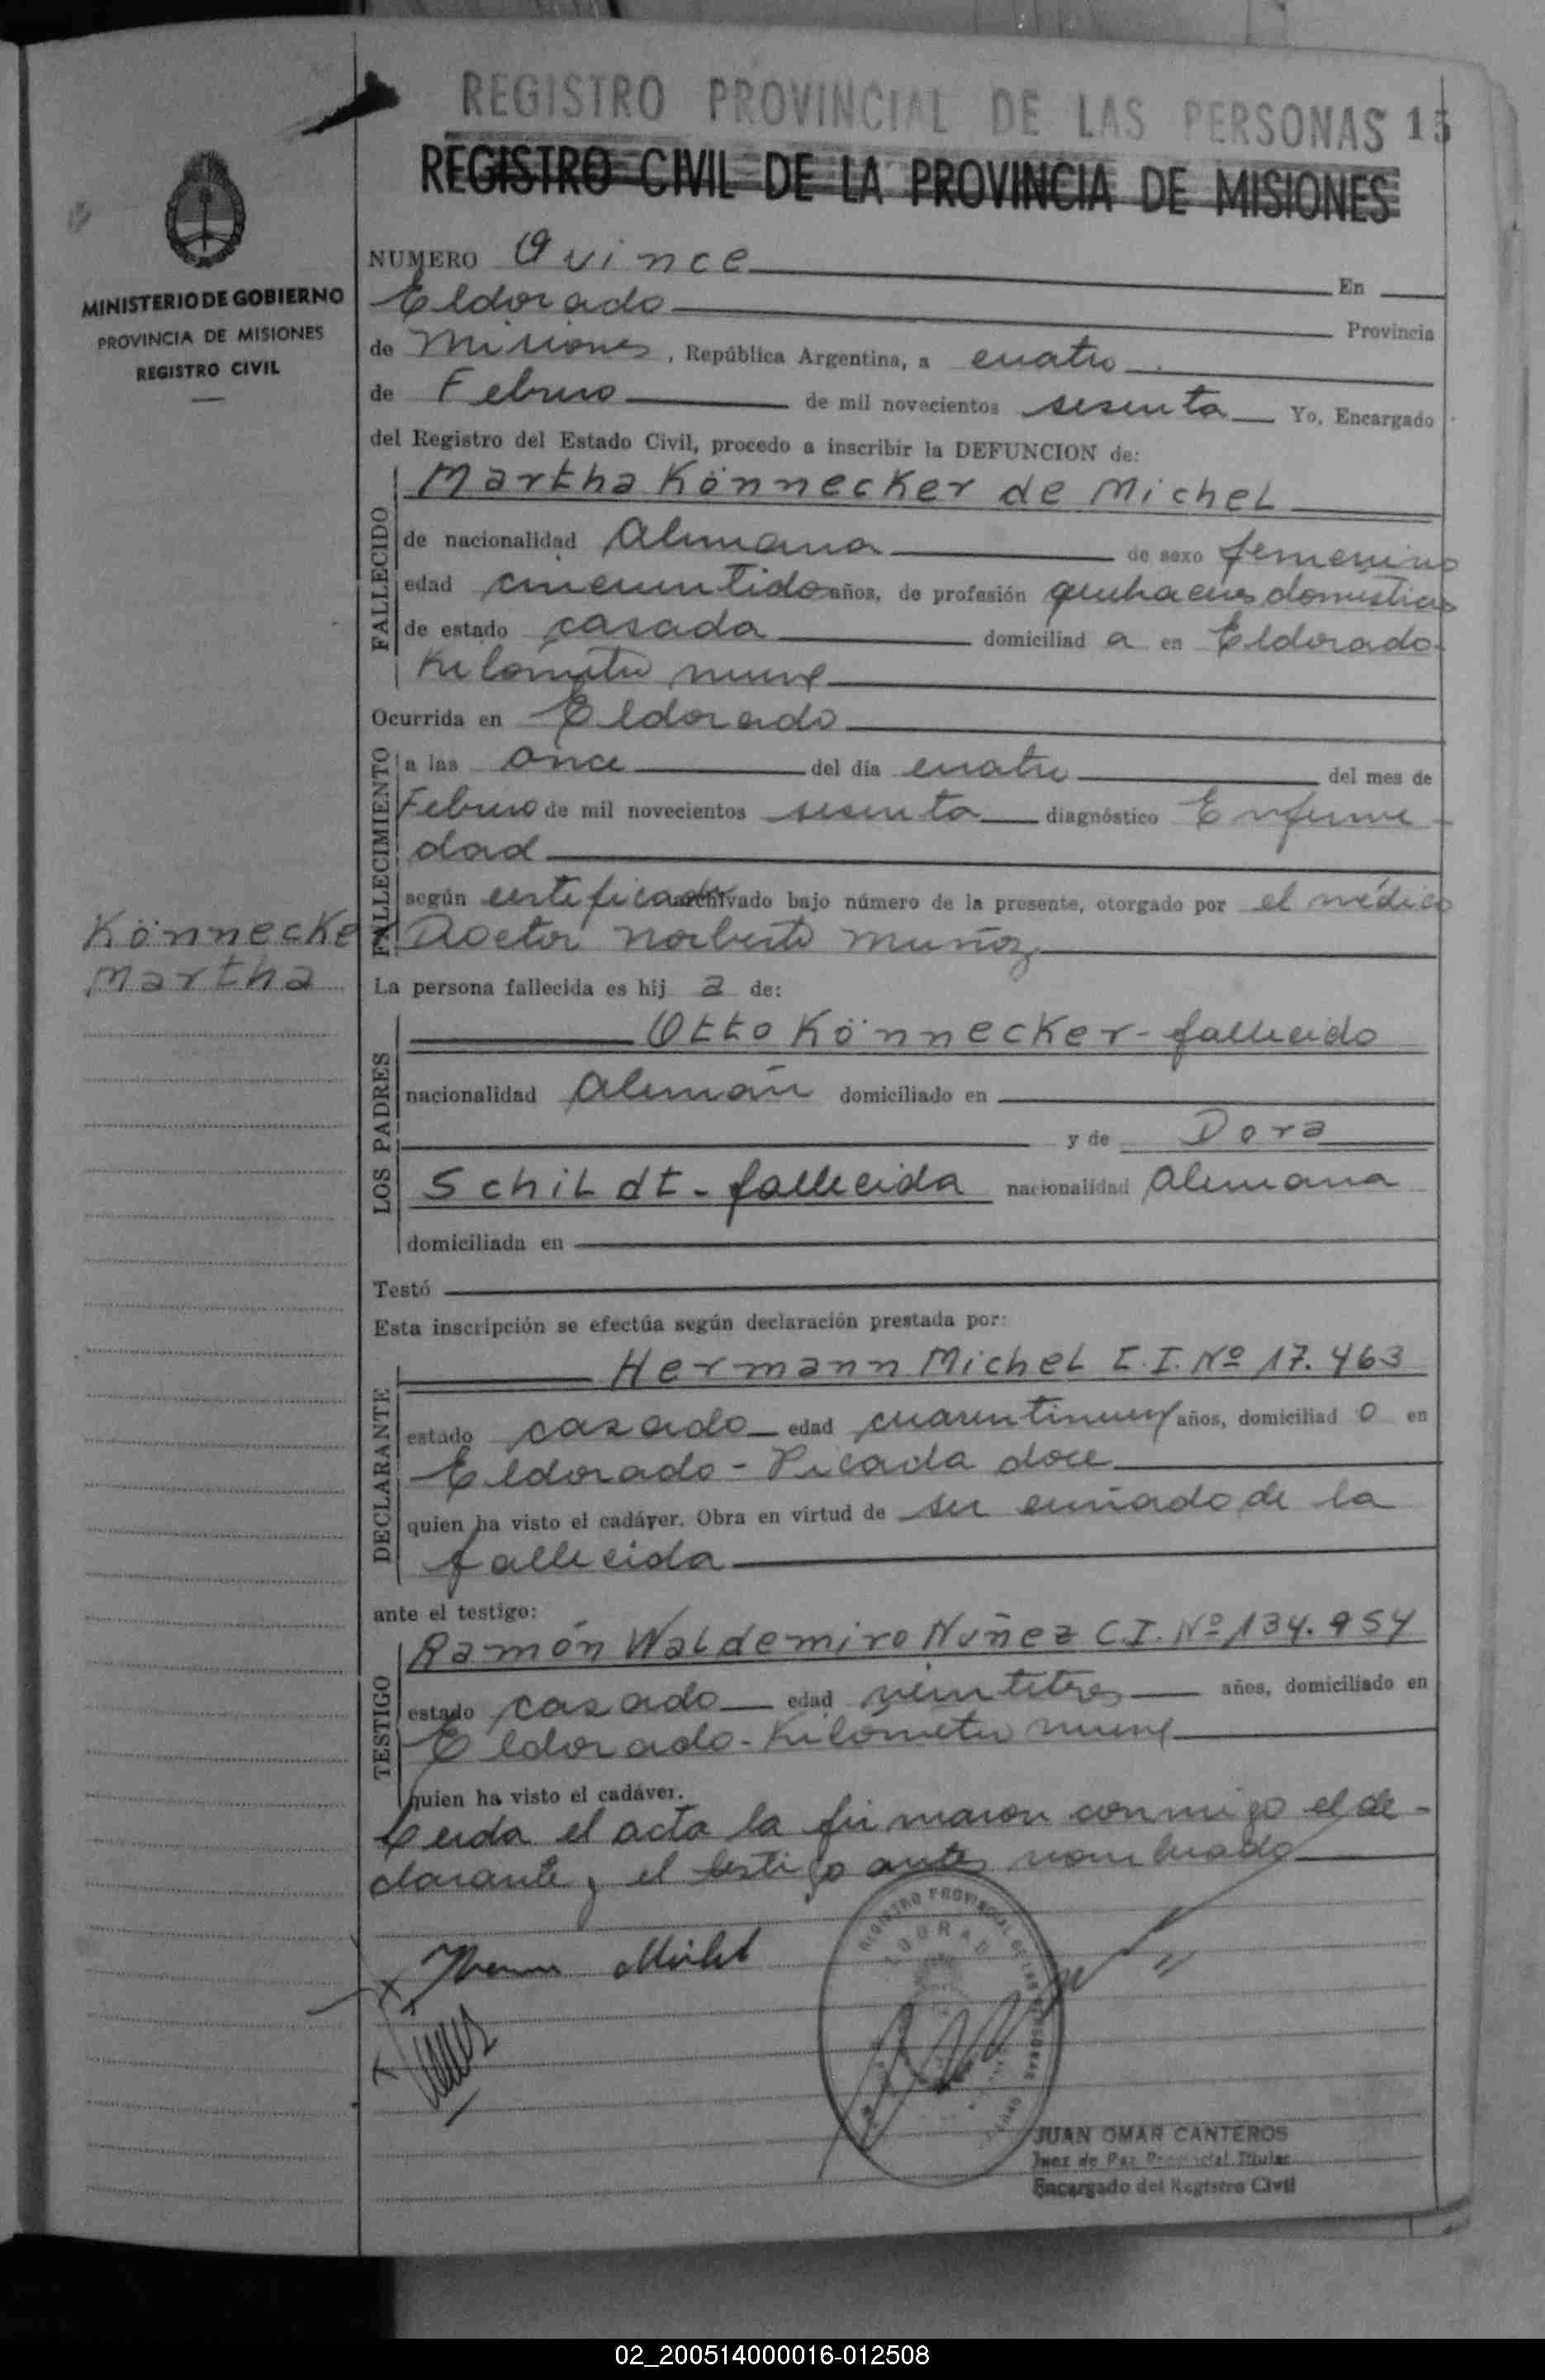 REGISTRO PROVINCIAL DE LAS PERSONAS 15
REGISTRO CIVIL DE LA PROVINCIA DE MISIONES
MINISTERIO DE GOBIERNO
PROVINCIA DE MISIONES
REGISTRO CIVIL
NUMERO Quince En
Eldorado Provincia
de Misiones, República Argentina, a cuatro
de Febrero de mil novecientos sesenta Yo, Encargado
del Registro del Estado Civil, procedo a inscribir la DEFUNCION de:
FALLECIDO
Martha Könnecker de Michel
de nacionalidad Alemana de sexo femenino
edad cincuentidos años, de profesión quehaceres domésticos
de estado casada domiciliad a en Eldorado
Kilómetro nueve
Ocurrida en Eldorado
FALLECIMIENTO
a las once del día cuatro del mes de
Febrero de mil novecientos sesenta diagnóstico Enferme-
dad
según certificado archivado bajo número de la presente, otorgado por el médico
Doctor Norberto Muñoz
Könnecker
Martha
La persona fallecida es hij a de:
LOS PADRES
Otto Könnecker - fallecido
nacionalidad Alemán domiciliado en
y de Dora
Schildt - fallecida nacionalidad Alemana
domiciliada en
Testó
Esta inscripción se efectúa según declaración prestada por:
DECLARANTE
Hermann Michel C.I. Nº 17.463
estado casado edad cuarentinueve años, domiciliad o en
Eldorado - Picada doce
quien ha visto el cadáver. Obra en virtud de ser cuñado de la
fallecida
ante el testigo:
TESTIGO
Ramón Waldemiro Nuñez C.I. Nº 134.954
estado casado edad veintitres años, domiciliado en
Eldorado - Kilómetro nueve
quien ha visto el cadáver.
Leida el acta la firmaron conmigo el de-
clarante y el testigo antes nombrado
REGISTRO PROVINCIAL DE LAS PERSONAS
ELDORADO
Hermann Michel
JUAN OMAR CANTEROS
Juez de Paz Provincial Titular
Encargado del Registro Civil
02_200514000016-012508